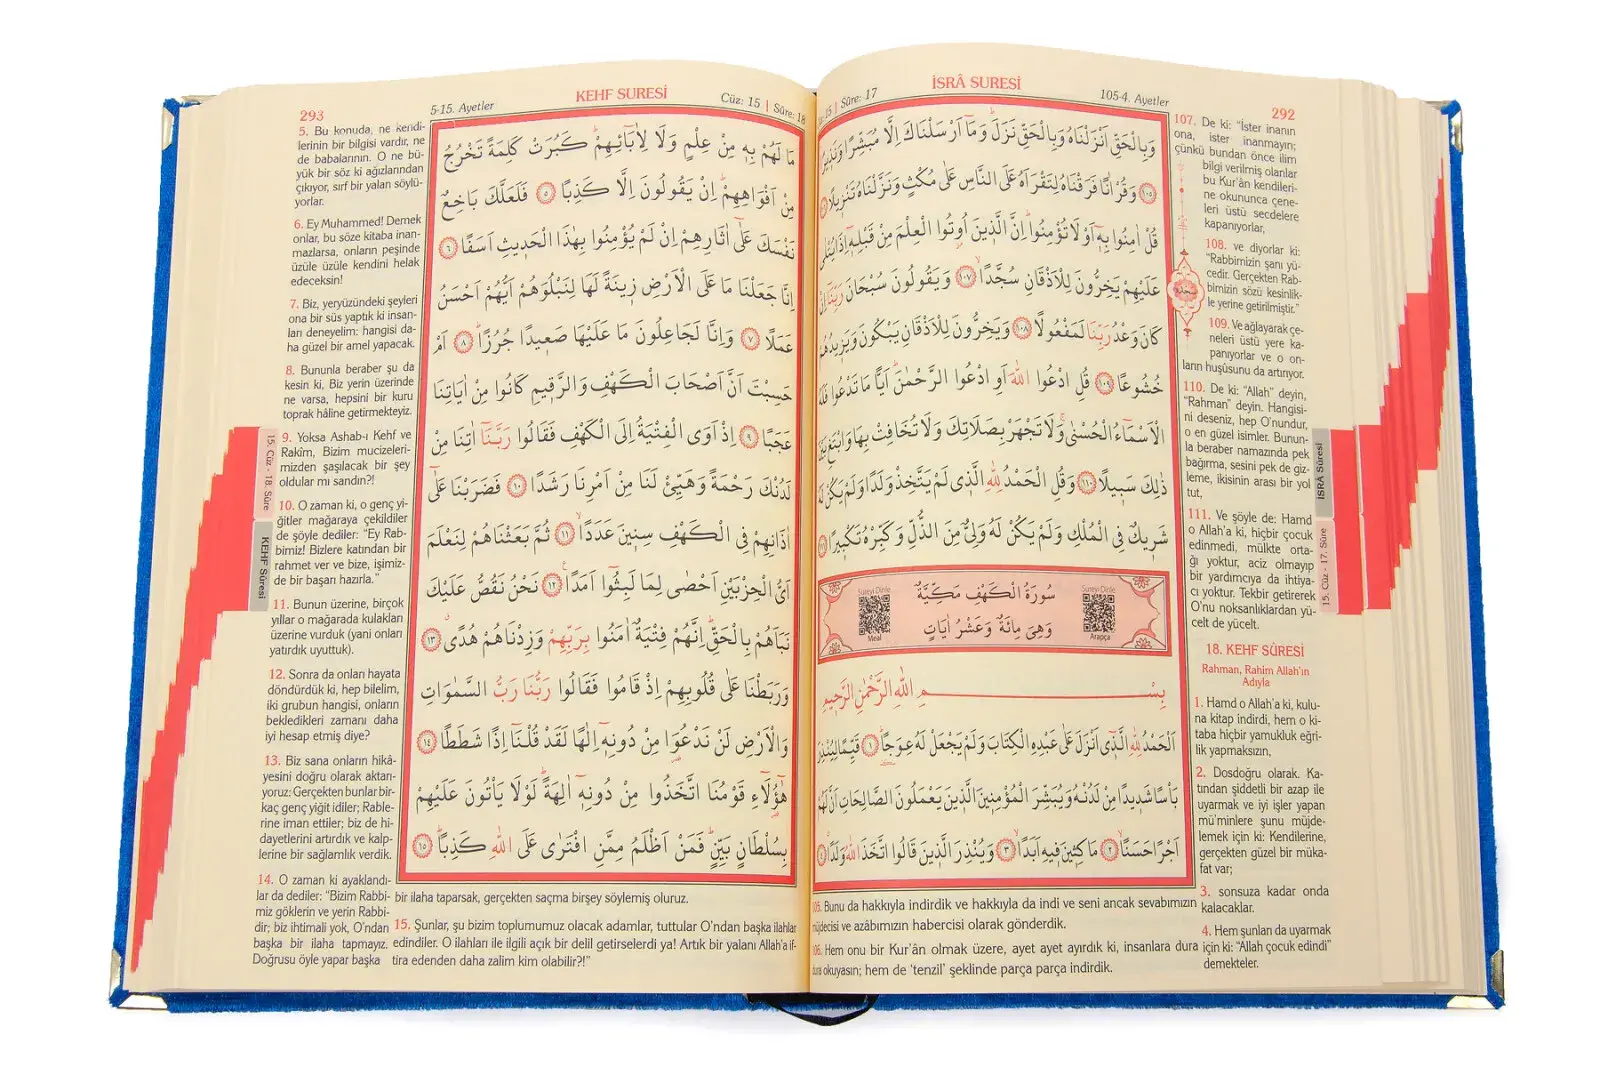 292
İSRÂ SURESİ
105-4. Ayetler
15 | Sûre: 17
وَبِالْحَقِّ اَنْزَلْنَاهُ وَبِالْحَقِّ نَزَلَۜ وَمَٓا اَرْسَلْنَاكَ اِلَّا مُبَشِّرًا وَنَذِيرًا
﴿١٠٥﴾ وَقُرْاٰنًا فَرَقْنَاهُ لِتَقْرَاَهُ عَلَى النَّاسِ عَلٰى مُكْثٍ وَنَزَّلْنَاهُ تَنْزِيلًا
قُلْ اٰمِنُوا بِهٖٓ اَوْ لَا تُؤْمِنُواۜ اِنَّ الَّذِينَ اُو۫تُوا الْعِلْمَ مِنْ قَبْلِهٖٓ اِذَا يُتْلٰى
عَلَيْهِمْ يَخِرُّونَ لِلْاَذْقَانِ سُجَّدًاۙ ﴿١٠٧﴾ وَيَقُولُونَ سُبْحَانَ رَبِّنَٓا اِنْ
كَانَ وَعْدُ رَبِّنَا لَمَفْعُولًا ﴿١٠٨﴾ وَيَخِرُّونَ لِلْاَذْقَانِ يَبْكُونَ وَيَزِيدُهُمْ
خُشُوعًا ﴿١٠٩﴾ قُلِ ادْعُوا اللّٰهَ اَوِ ادْعُوا الرَّحْمٰنَۜ اَيًّا مَا تَدْعُوا فَلَهُ
الْاَسْمَٓاءُ الْحُسْنٰىۚ وَلَا تَجْهَرْ بِصَلَاتِكَ وَلَا تُخَافِتْ بِهَا وَابْتَغِ بَيْنَ
ذٰلِكَ سَبِيلًا ﴿١١٠﴾ وَقُلِ الْحَمْدُ لِلّٰهِ الَّذِي لَمْ يَتَّخِذْ وَلَدًا وَلَمْ يَكُنْ لَهُ
شَرِيكٌ فِي الْمُلْكِ وَلَمْ يَكُنْ لَهُ وَلِيٌّ مِنَ الذُّلِّ وَكَبِّرْهُ تَكْبِيرًا
Sureyi Dinle
سُورَةُ الْكَهْفِ مَكِّيَّةٌ
Sureyi Dinle
وَهِيَ مِائَةٌ وَعَشْرُ اٰيَاتٍ
Arapça
Meal
بِسْمِ اللّٰهِ الرَّحْمٰنِ الرَّحِيمِ
اَلْحَمْدُ لِلّٰهِ الَّذِٓي اَنْزَلَ عَلٰى عَبْدِهِ الْكِتَابَ وَلَمْ يَجْعَلْ لَهُ عِوَجًاۜ ﴿١﴾ قَيِّمًا لِيُنْذِرَ
بَاْسًا شَدِيدًا مِنْ لَدُنْهُ وَيُبَشِّرَ الْمُؤْمِنِينَ الَّذِينَ يَعْمَلُونَ الصَّالِحَاتِ اَنَّ لَهُمْ
اَجْرًا حَسَنًاۙ ﴿٢﴾ مَاكِثِينَ فِيهِ اَبَدًاۙ ﴿٣﴾ وَيُنْذِرَ الَّذِينَ قَالُوا اتَّخَذَ اللّٰهُ وَلَدًا ﴿٤﴾
105. Bunu da hakkıyla indirdik ve hakkıyla da indi ve seni ancak sevabımızın
müjdecisi ve azâbımızın habercisi olarak gönderdik.
106. Hem onu bir Kur'ân olmak üzere, ayet ayet ayırdık ki, insanlara dura
dura okuyasın; hem de 'tenzil' şeklinde parça parça indirdik.
107. De ki: "İster inanın
ona, ister inanmayın;
çünkü bundan önce ilim
bilgi verilmiş olanlar
bu Kur'ân kendileri-
ne okununca çene-
leri üstü secdelere
kapanıyorlar,
108. ve diyorlar ki:
"Rabbimizin şanı yü-
cedir. Gerçekten Rab-
bimizin sözü kesinlik-
le yerine getirilmiştir."
109. Ve ağlayarak çe-
neleri üstü yere ka-
panıyorlar ve o on-
ların huşûsunu da artırıyor.
110. De ki: "Allah" deyin,
"Rahman" deyin. Hangisi-
ni deseniz, hep O'nundur,
o en güzel isimler. Bunun-
la beraber namazında pek
bağırma, sesini pek de giz-
leme, ikisinin arası bir yol
tut,
111. Ve şöyle de: Hamd
o Allah'a ki, hiçbir çocuk
edinmedi, mülkte orta-
ğı yoktur, aciz olmayıp
bir yardımcıya da ihtiya-
cı yoktur. Tekbir getirerek
O'nu noksanlıklardan yü-
celt de yücelt.
18. KEHF SÛRESİ
Rahman, Rahim Allah'ın
Adıyla
1. Hamd o Allah'a ki, kulu-
na kitap indirdi, hem o ki-
taba hiçbir yamukluk eğri-
lik yapmaksızın,
2. Dosdoğru olarak. Ka-
tından şiddetli bir azap ile
uyarmak ve iyi işler yapan
mü'minlere şunu müjde-
lemek için ki: Kendilerine,
gerçekten güzel bir müka-
fat var;
3. sonsuza kadar onda
kalacaklar.
4. Hem şunları da uyarmak
için ki: "Allah çocuk edindi"
demekteler.
İSRÂ Sûresi
15. Cüz - 17. Sûre
293
5-15. Ayetler
KEHF SURESİ
Cüz: 15 | Sûre: 18
مَا لَهُمْ بِهٖ مِنْ عِلْمٍ وَلَا لِاٰبَٓائِهِمْۜ كَبُرَتْ كَلِمَةً تَخْرُجُ
مِنْ اَفْوَاهِهِمْۜ اِنْ يَقُولُونَ اِلَّا كَذِبًا ﴿٥﴾ فَلَعَلَّكَ بَاخِعٌ
نَفْسَكَ عَلٰٓى اٰثَارِهِمْ اِنْ لَمْ يُؤْمِنُوا بِهٰذَا الْحَدِيثِ اَسَفًا ﴿٦﴾
اِنَّا جَعَلْنَا مَا عَلَى الْاَرْضِ زِينَةً لَهَا لِنَبْلُوَهُمْ اَيُّهُمْ اَحْسَنُ
عَمَلًا ﴿٧﴾ وَاِنَّا لَجَاعِلُونَ مَا عَلَيْهَا صَعِيدًا جُرُزًاۜ ﴿٨﴾ اَمْ
حَسِبْتَ اَنَّ اَصْحَابَ الْكَهْفِ وَالرَّقِيمِ كَانُوا مِنْ اٰيَاتِنَا
عَجَبًا ﴿٩﴾ اِذْ اَوَى الْفِتْيَةُ اِلَى الْكَهْفِ فَقَالُوا رَبَّنَٓا اٰتِنَا مِنْ
لَدُنْكَ رَحْمَةً وَهَيِّئْ لَنَا مِنْ اَمْرِنَا رَشَدًا ﴿١٠﴾ فَضَرَبْنَا عَلٰٓى
اٰذَانِهِمْ فِي الْكَهْفِ سِنِينَ عَدَدًاۙ ﴿١١﴾ ثُمَّ بَعَثْنَاهُمْ لِنَعْلَمَ
اَيُّ الْحِزْبَيْنِ اَحْصٰى لِمَا لَبِثُٓوا اَمَدًا۟ ﴿١٢﴾ نَحْنُ نَقُصُّ عَلَيْكَ
نَبَاَهُمْ بِالْحَقِّۜ اِنَّهُمْ فِتْيَةٌ اٰمَنُوا بِرَبِّهِمْ وَزِدْنَاهُمْ هُدًىۗ ﴿١٣﴾
وَرَبَطْنَا عَلٰى قُلُوبِهِمْ اِذْ قَامُوا فَقَالُوا رَبُّنَا رَبُّ السَّمٰوَاتِ
وَالْاَرْضِ لَنْ نَدْعُوَا۬ مِنْ دُونِهٖٓ اِلٰهًا لَقَدْ قُلْنَٓا اِذًا شَطَطًا ﴿١٤﴾
هٰٓؤُ۬لَٓاءِ قَوْمُنَا اتَّخَذُوا مِنْ دُونِهٖٓ اٰلِهَةًۜ لَوْلَا يَاْتُونَ عَلَيْهِمْ
بِسُلْطَانٍ بَيِّنٍۜ فَمَنْ اَظْلَمُ مِمَّنِ افْتَرٰى عَلَى اللّٰهِ كَذِبًاۜ ﴿١٥﴾
5. Bu konuda, ne kendi-
lerinin bir bilgisi vardır, ne
de babalarının. O ne bü-
yük bir söz ki ağızlarından
çıkıyor, sırf bir yalan söylü-
yorlar.
6. Ey Muhammed! Demek
onlar, bu söze kitaba inan-
mazlarsa, onların peşinde
üzüle üzüle kendini helak
edeceksin!
7. Biz, yeryüzündeki şeyleri
ona bir süs yaptık ki insan-
ları deneyelim: hangisi da-
ha güzel bir amel yapacak.
8. Bununla beraber şu da
kesin ki, Biz yerin üzerinde
ne varsa, hepsini bir kuru
toprak hâline getirmekteyiz.
9. Yoksa Ashab-ı Kehf ve
Rakîm, Bizim mucizeleri-
mizden şaşılacak bir şey
oldular mı sandın?!
10. O zaman ki, o genç yi-
ğitler mağaraya çekildiler
de şöyle dediler: "Ey Rab-
bimiz! Bizlere katından bir
rahmet ver ve bize, işimiz-
de bir başarı hazırla."
11. Bunun üzerine, birçok
yıllar o mağarada kulakları
üzerine vurduk (yani onları
yatırdık uyuttuk).
12. Sonra da onları hayata
döndürdük ki, hep bilelim,
iki grubun hangisi, onların
bekledikleri zamanı daha
iyi hesap etmiş diye?
13. Biz sana onların hikâ-
yesini doğru olarak aktarı-
yoruz: Gerçekten bunlar bir-
kaç genç yiğit idiler; Rable-
rine iman ettiler; biz de hi-
dayetlerini artırdık ve kalp-
lerine bir sağlamlık verdik.
14. O zaman ki ayaklandı-
lar da dediler: "Bizim Rabbi-
miz göklerin ve yerin Rabbi-
dir; biz ihtimali yok, O'ndan
başka bir ilaha tapmayız.
Doğrusu öyle yapar başka
bir ilaha taparsak, gerçekten saçma birşey söylemiş oluruz.
15. Şunlar, şu bizim toplumumuz olacak adamlar, tuttular O'ndan başka ilahlar
edindiler. O ilahları ile ilgili açık bir delil getirselerdi ya! Artık bir yalanı Allah'a if-
tira edenden daha zalim kim olabilir?!"
15. Cüz - 18. Sûre
KEHF Sûresi